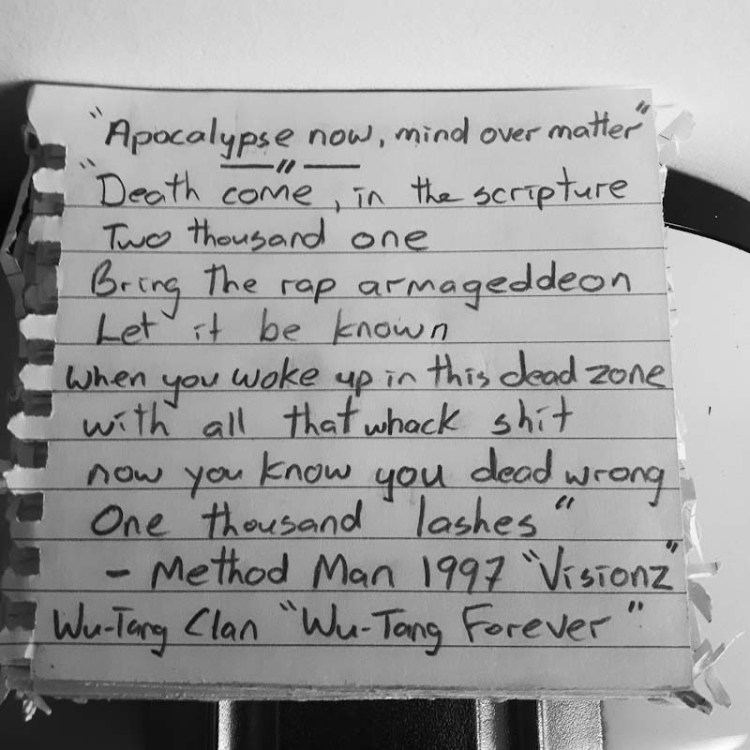 "Apocalypse now, mind over matter"
"Death come", in the scripture
Two thousand one
Bring the rap armageddeon
Let it be known
when you woke up in this dead zone
with all that whack shit
now you know you dead wrong
One thousand lashes"
- Method Man 1997 "Visionz"
Wu-Tang Clan "Wu-Tang Forever"